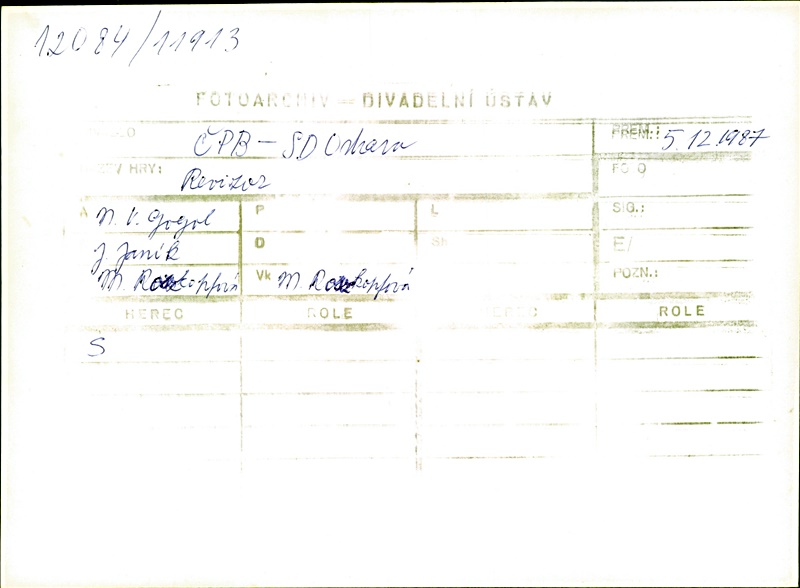 12084/11913
FOTOARCHIV – DIVADELNÍ ÚSTAV
ČPB – SD Ostrava
PREM.: 5.12.1987
HRY: Revizor
FOTO
A N. V. Gogol P L SIG.:
J. Janík D E/
M. Roszkopfová Vk M. Roszkopfová POZN.:
HEREC ROLE HEREC ROLE
S